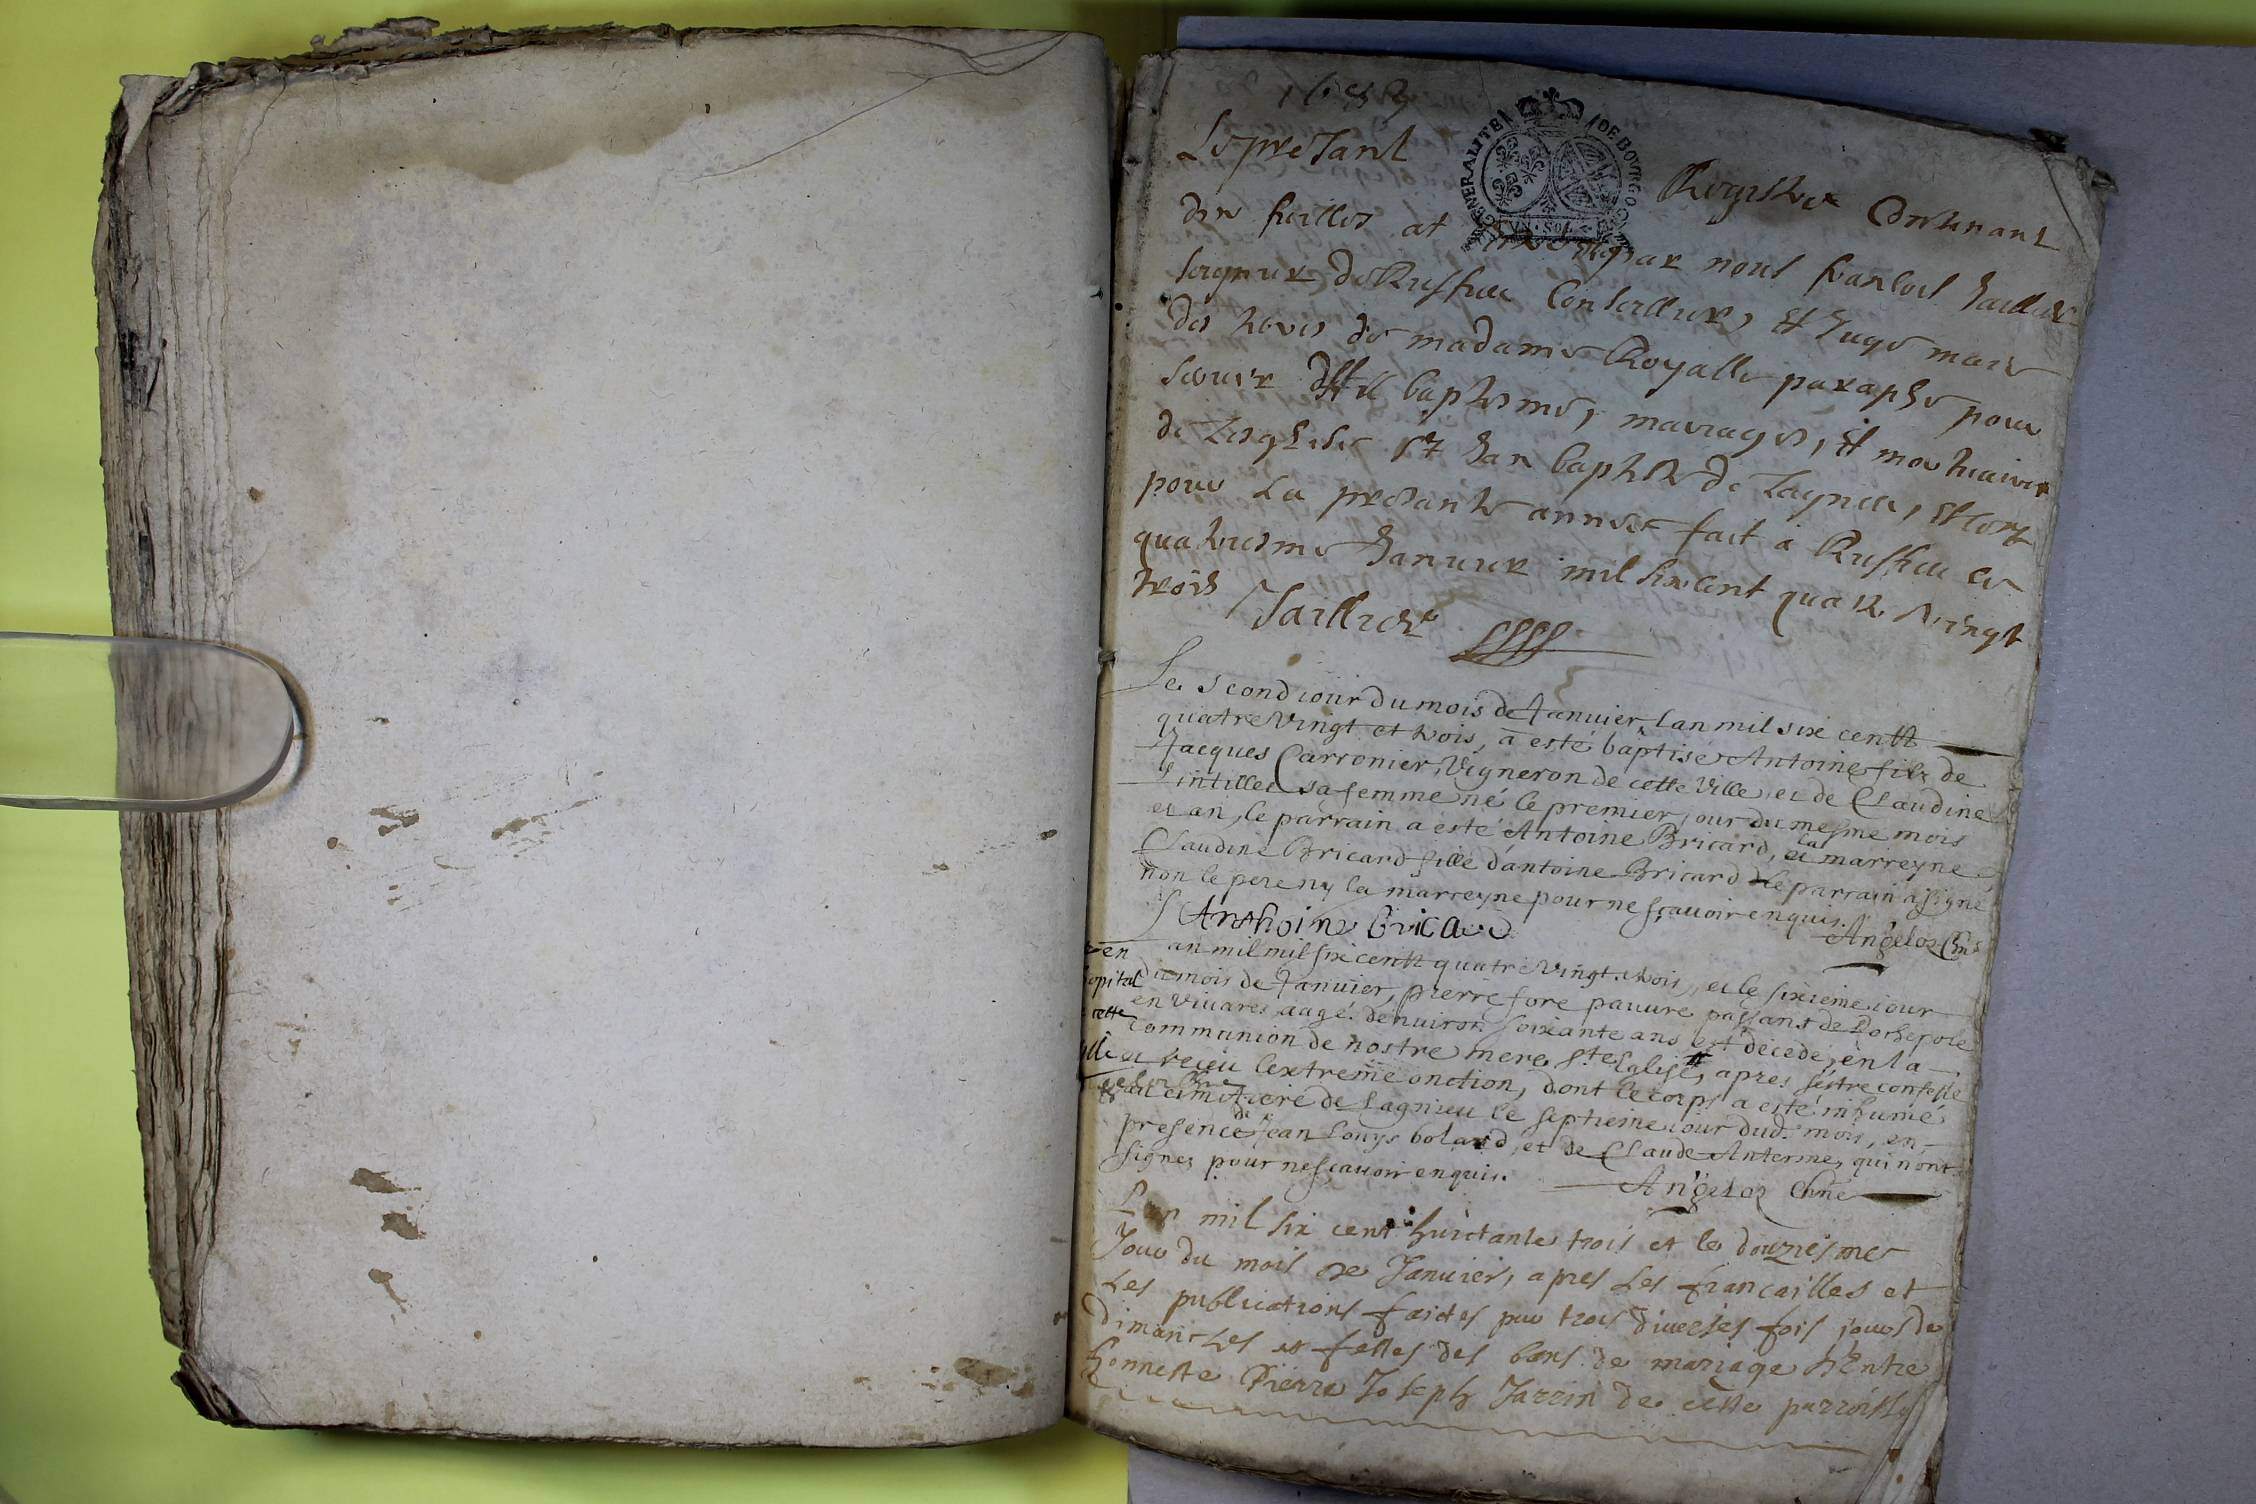 1683
Le presant Registre Contenant
GENERALITE DE BOVRGOGNE
VN SOL
dix feilles at par nous francois Jaillier
seigneur de Ruffieu Conseillier, Et Juge maie
des terres de madame Royalle paraphe pour
servir baptesmes, mariages, Et mortuaires
de Lesglise St Jan baptiste de Lagnieu, Et
pour La presante annee fait a Ruffieu ce
quatriesme Januier mil six cent quatre vingt
trois Jaillier
Le second iour du mois de Januier, lan mil six centt
quatre Vingt et trois, a esté baptisé Antoine fils de
Jacques Carronier, Vigneron de cette Ville et de Claudine
Lintillee sa femme né le premier jour du mesme mois
et an, le parrain a esté Antoine Bricard, et la marreyne
Claudine Bricard fille d'antoine Bricard le parrain a signé
non le pere ny la marreyne pour ne sçauoir enquis.
Anthoine Bricard
Angeloz Chne
an mil mil six centt quatre Vingt trois, et le sixieme iour
du mois de Januier, pierre fore pauure passant de Rochepole
en Viuares aagé denuiron soixante ans est decedé, en la
en
hopital
cette
ville
communion de nostre mere Ste Eglise, apres sestre confessé
et receu lextreme onction, dont le corps a esté inhumé
au cimitiere de Lagnieu le septieme iour dud. mois, en
presence de Jean Louys bolard, et de Claude Anterme, qui n'ont
signez pour ne sçauoir enquis.
Angeloz Chne
Lan mil six cent huictante trois et le douziesmes
Jour du mois de Januier, apres Les fiançailles et
Les publications faictes par trois diuerses fois jours de
dimanches et festes des bans de mariage Entre
honneste Pierre Joseph Jarrin de cette parroisse